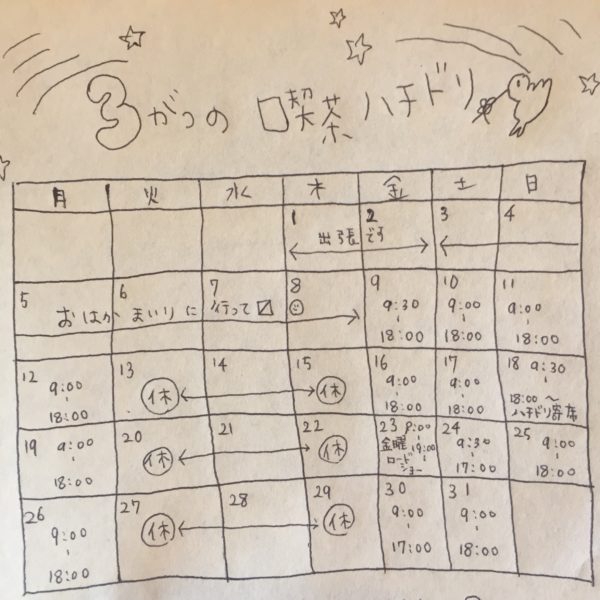 3がつの 喫茶ハチドリ
月 火 水 木 金 土 日
1 2 3 4
出張です
5 6 7 8 9 10 11
おはか まいりに 行って 9:30 - 18:00 9:00 - 18:00 9:00 - 18:00
12 13 14 15 16 17 18
9:00 - 18:00 休 休 9:00 - 18:00 9:00 - 18:00 9:30
18:00〜
ハチドリ寄席
19 20 21 22 23 24 25
9:00 - 18:00 休 休 9:00 - 19:00 9:30 - 17:00 9:00 - 18:00
金曜
ロード
ショー
26 27 28 29 30 31
9:00 - 18:00 休 休 9:00 - 17:00 9:00 - 18:00